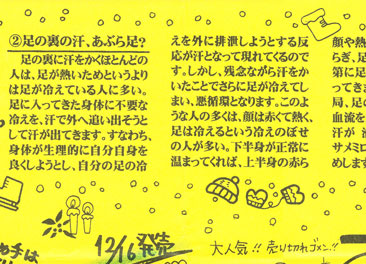 ②足の裏の汗、あぶら足?
足の裏に汗をかくほとんどの
人は、足が熱いためというより
は足が冷えている人に多い。
足に入ってきた身体に不要な
冷えを、汗で外へ追い出そうと
して汗が出てきます。すなわち、
身体が生理的に自分自身を
良くしようとし、自分の足の冷
えを外に排泄しようとする反
応が汗となって現れてくるので
す。しかし、残念ながら汗をか
いたことでさらに足が冷えてし
まい、悪循環となります。このよ
うな人の多くは、顔は赤くて熱く、
足は冷えるという冷えのぼせ
の人が多い。下半身が正常に
温まってくれば、上半身の赤ら
顔や熱
らぎ、足
第に足
って
局、足の
血流を
汗が
サメミロ
めします
12/16発売
大人気!!売り切れゴメン!!
めチは